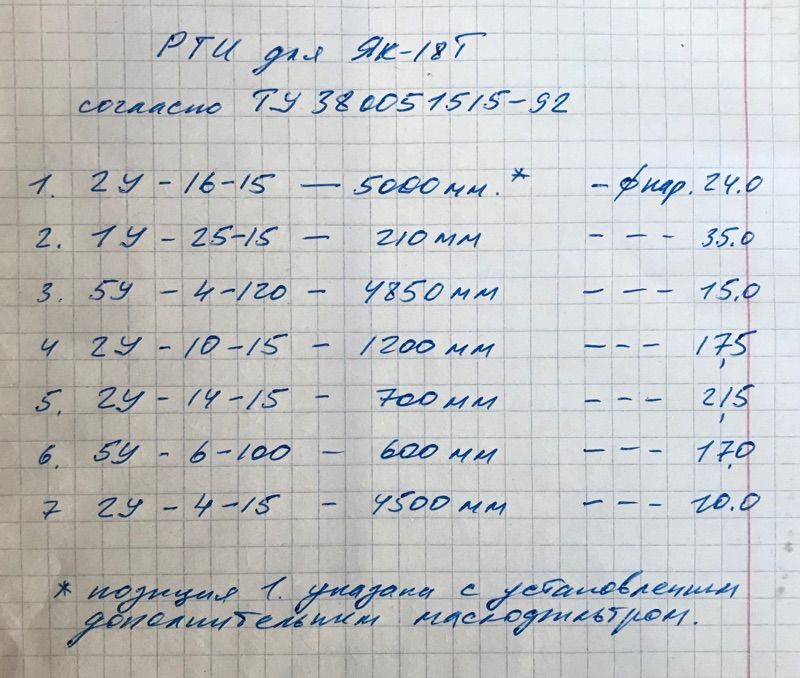 РТИ для ЯК-18Т
согласно ТУ 380051515-92
1. 2У - 16-15 — 5000 мм. * - ф нар. 24.0
2. 1У - 25-15 - 210 мм - - - 35.0
3. 5У - 4-120 - 4850 мм - - - 15.0
4 2У - 10-15 - 1200 мм - - - 17,5
5. 2У - 14-15 - 700 мм - - - 21,5
6. 5У - 6-100 - 600 мм - - - 17,0
7 2У - 4-15 - 4500 мм - - - 10.0
* позиция 1. указана с установленным
дополнительным маслофильтром.